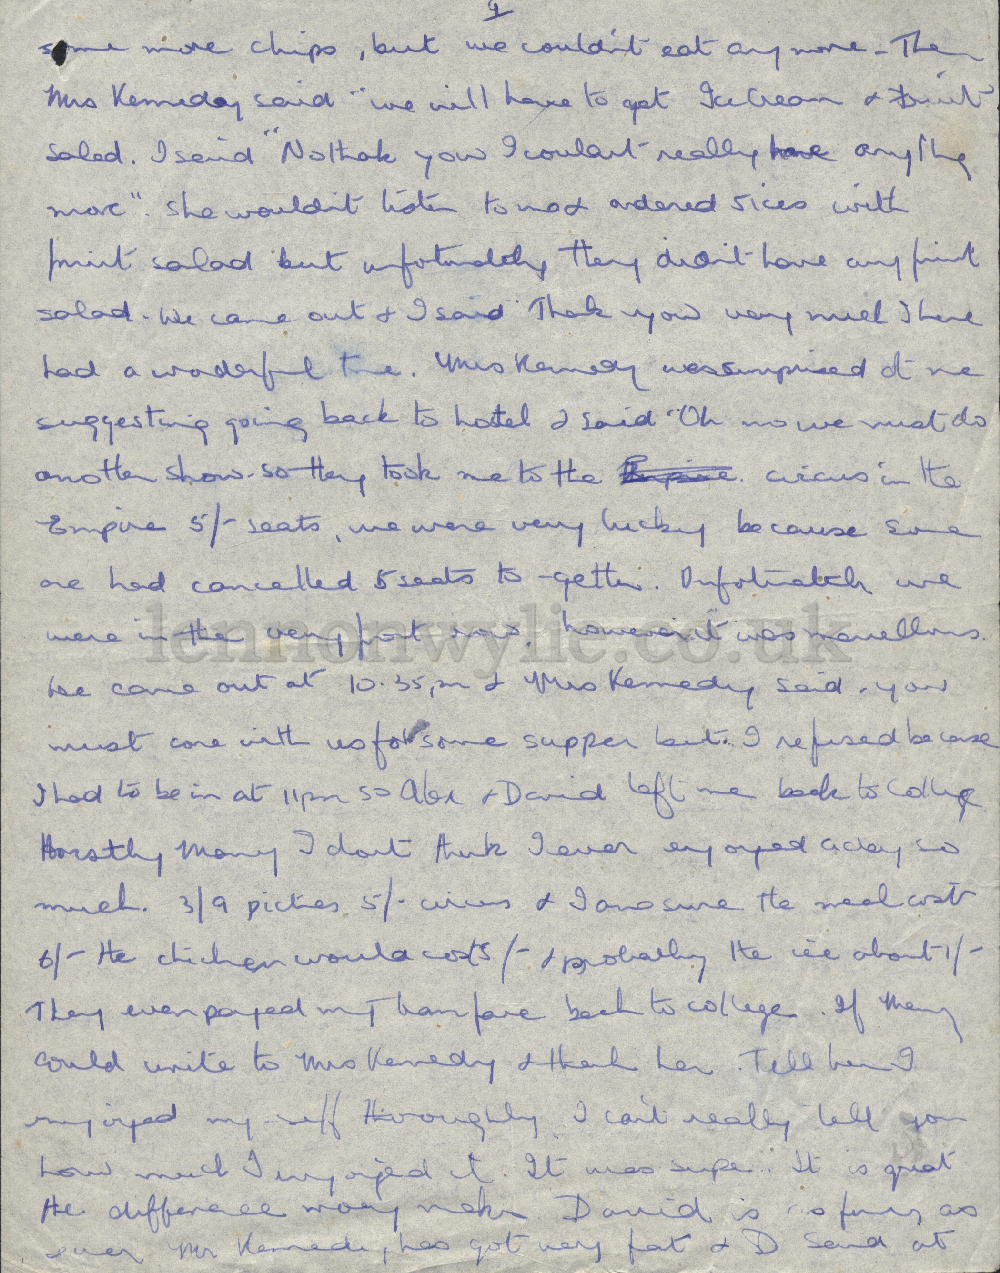 4
some more chips, but we couldn't eat any more - Then
Mrs Kennedy said "we will have to get Ice Cream & Fruit
salad. I said "No thak you I couldn't really have anything
more". She wouldn't listen to me & ordered 5 ices with
fruit salad but unfortunately they didn't have any fruit
salad. We came out & I said Thak you very much I have
had a wonderful time. Mrs Kennedy was surprised at me
suggesting going back to hostel & said "Oh no we must do
another show. So they took me to the Empire. circus in the
Empire 5/- seats, we were very lucky because some
one had cancelled 5 seats to-gether. Unfortunately we
were in the very front row, however it was marvellous.
We came out at 10.35pm & Mrs Kennedy said, you
must come with us for some supper but I refused because
I had to be in at 11pm so Alex & David left me back to College
Honestly Mary I don't think I ever enjoyed a day so
much. 3/9 pictures 5/- circus & I am sure the meal cost
6/- the chicken would cost 5/- & probably the ice about 1/-
They even payed my tram fare back to college. If Mary
could write to Mrs Kennedy & thank her. Tell her I
enjoyed my-self thoroughly. I can't really tell you
how much I enjoyed it. It was super. It is great
the difference money makes David is as funny as
ever Mr Kennedy has got very fat & D said at
lennonwylie.co.uk